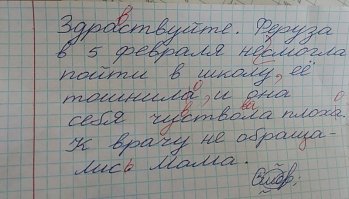 Здравствуйте. Феруза
в 5 февраля несмогла
пойти в школу, её
тошнило, и она
себя чувствовала плохо.
К врачу не обраща-
лись мама.